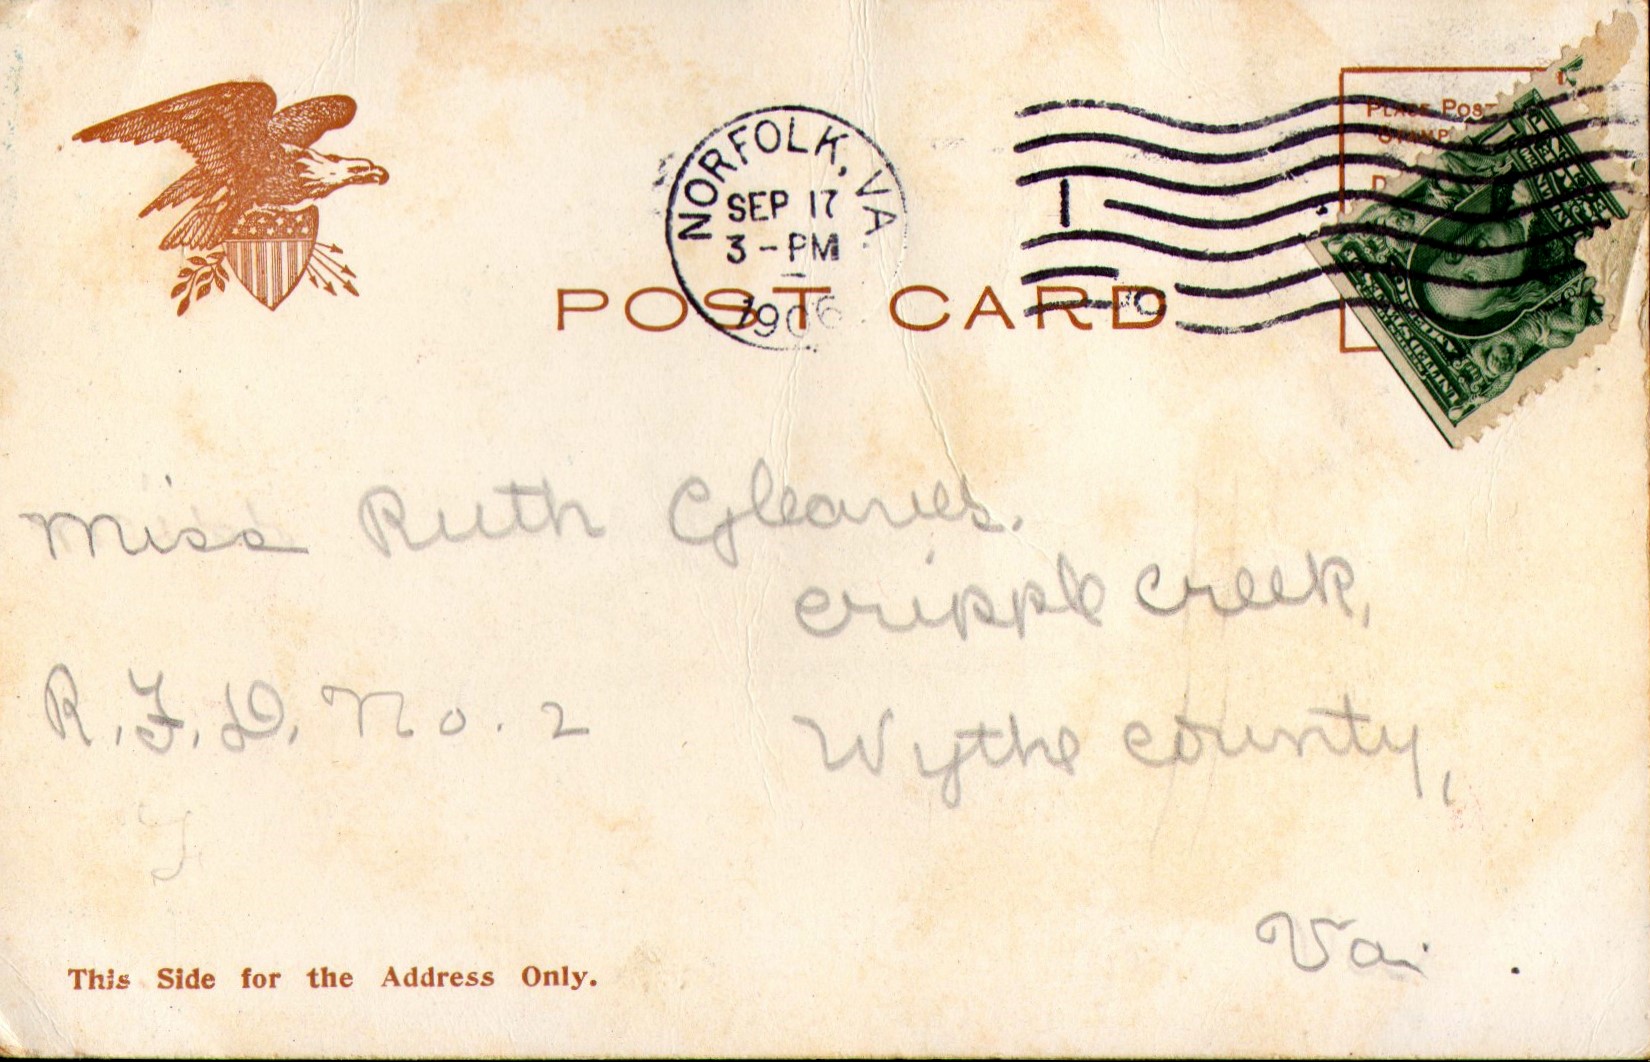 NORFOLK, VA.
SEP 17
3 - PM
1906
1
PLACE POS
STAMP
D
UNITED STATES
POST CARD
Miss Ruth Gleaves.
Cripple Creek,
R.F.D. No. 2
Wythe County,
Va.
This Side for the Address Only.